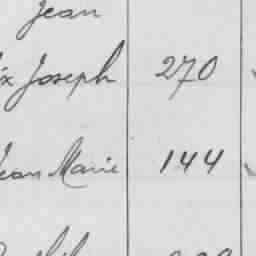 Jean
x Joseph 270
Jean Marie 144